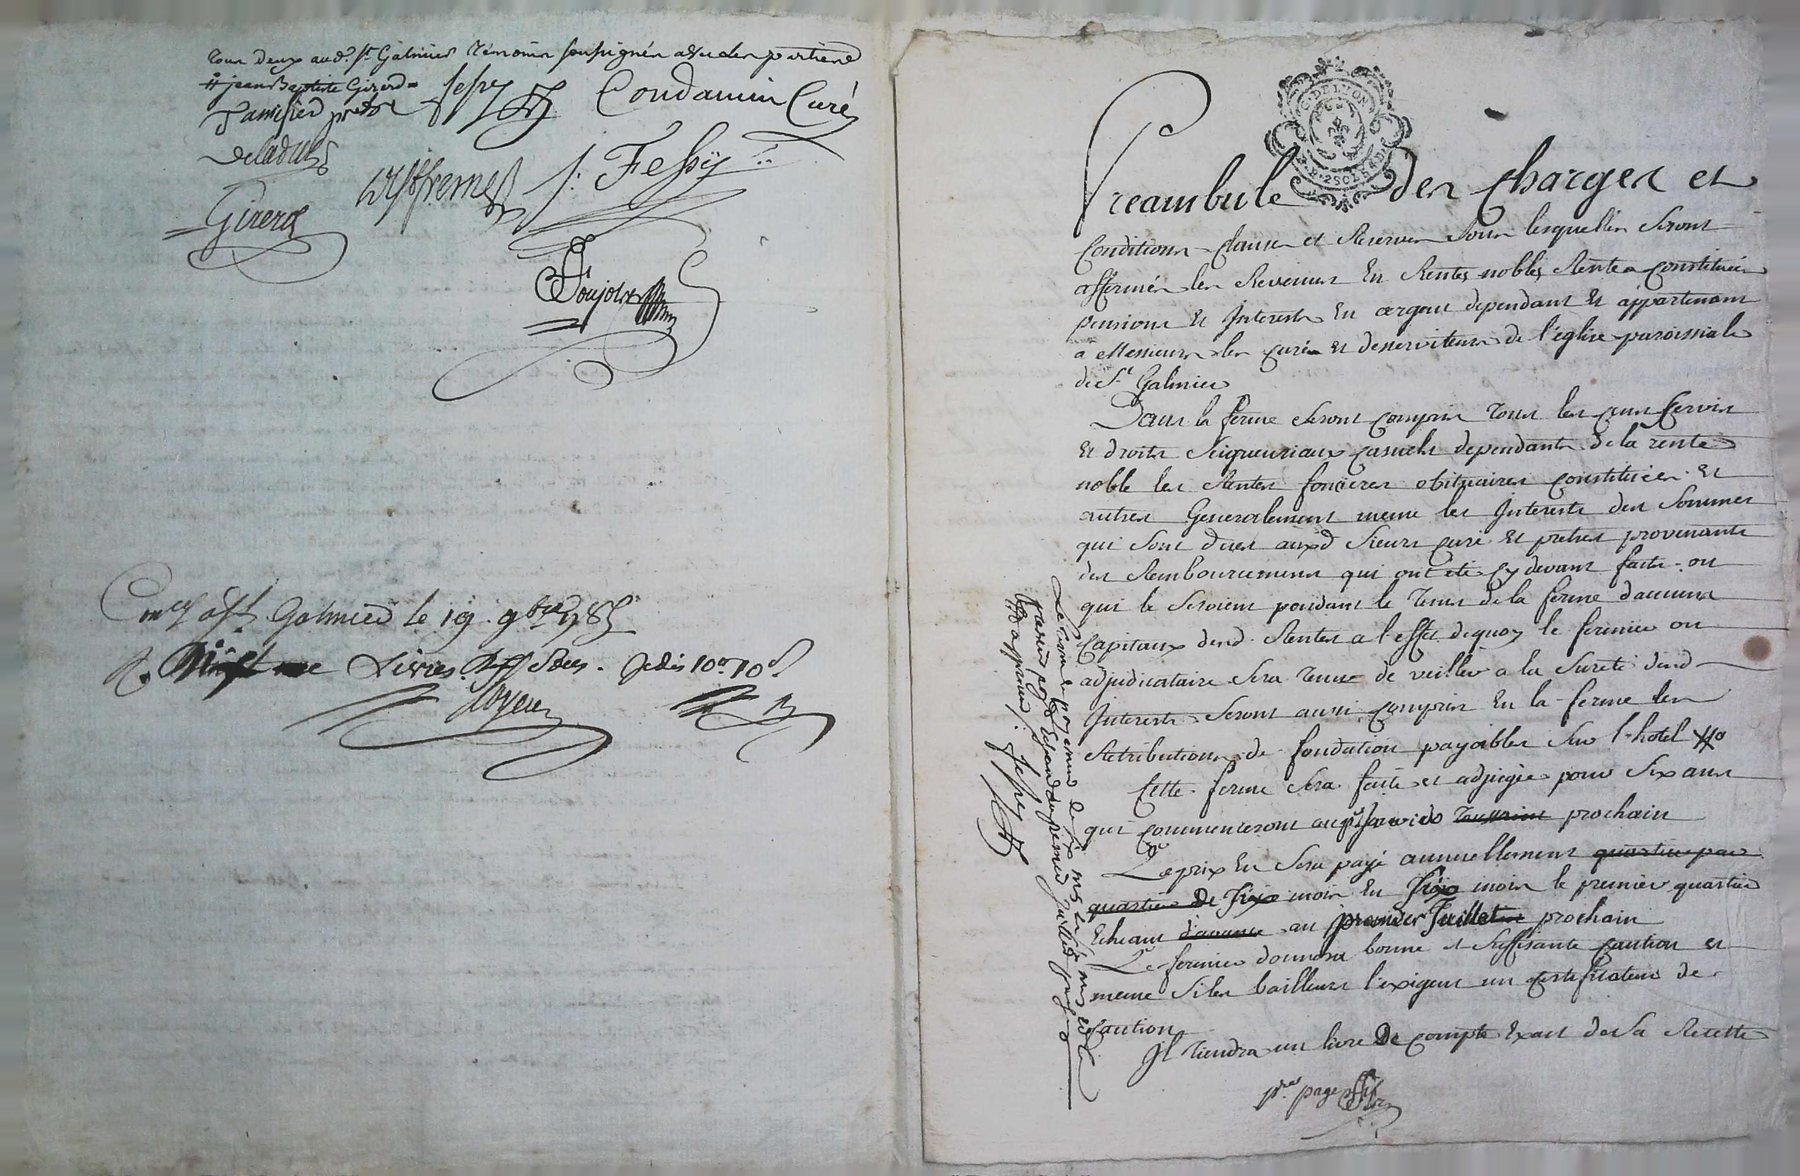 tous deux aud. St Galmier temoins soussignés avec les parties
jean Baptiste Girerd
Fessy Condamin Curé
J. Fessy
Girerd
Galmier le 19 9bre 178
Livres sols. 10s 10d
C. DE LYON
Preambule des charges et
Conditions clauses et Reserves sous lesquelles seront
affermés les Revenus en Rentes nobles Rentes constituées
pensions et Interests en argent dependant et appartenant
a Messieurs les curé et desserviteurs de l'église paroissiale
de St Galmier
Dans la ferme seront compris tous les cens servis
et droits seigneuriaux casuels dependants de la rente
noble les Rentes foncieres obituaires constituées et
autres Generalement meme les Interests des sommes
qui sont dues auxd sieurs curé et pretres provenants
des Remboursemens qui ont eté cy devant faits ou
qui le seroient pendant le tems de la ferme d'aucuns
capitaux desd. Rentes a l'effet dequoy le fermier ou
adjudicataire sera tenu de veiller a la sureté desd
Interests seront aussi compris en la ferme les
Retributions de fondation payables sur l'hotel
Cette ferme sera faite et adjugée pour six ans
qui commenceront au janvier Toussaint prochain
Le prix en sera payé annuellement quartier par
quartier de mois en mois le premier quartier
Echeant d'avance au premier Juillet prochain
Le fermier donnera bonne et suffisante caution et
meme si les bailleurs l'exigent un certificateur de
caution
Il tiendra un livre De compte Exact de sa Recette
pre page